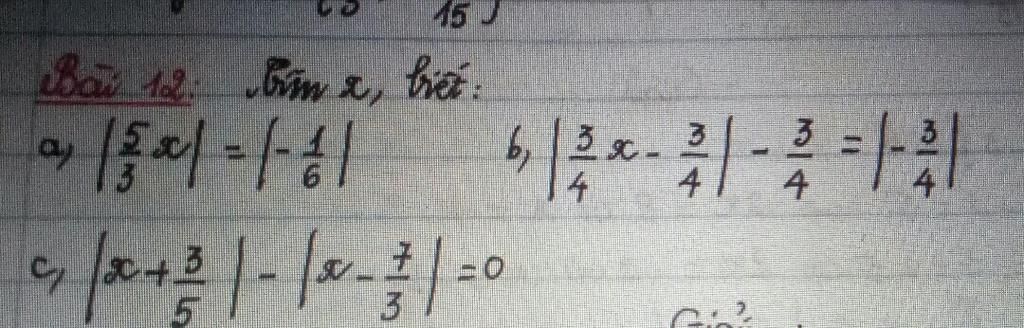 15
Bài 12: Tìm x, biết:
a, |5/3 x| = |-1/6| b, |3/4 x - 3/4| - 3/4 = |-3/4|
c, |x + 3/5| - |x - 7/3| = 0